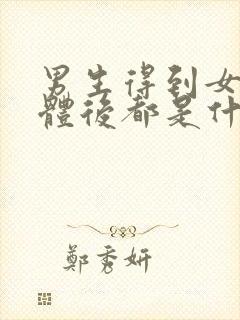 男生得到女
體後都是什
鄭秀妍